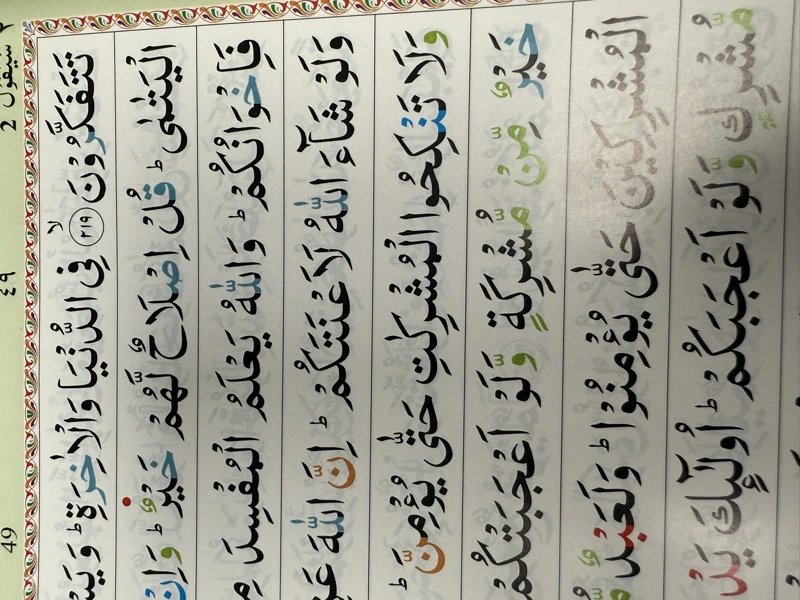 سيقول 2 ٤٩ 49
تَتَفَكَّرُوْنَ ﴿٢١٩﴾ۙ فِى الدُّنْيَا وَالْاٰخِرَةِ ؕ وَيَسْ
الْيَتٰمٰى ؕ قُلْ اِصْلَاحٌ لَّهُمْ خَيْرٌ ؕ وَاِنْ
فَاِخْوَانُكُمْ ؕ وَاللّٰهُ يَعْلَمُ الْمُفْسِدَ مِ
وَلَوْ شَآءَ اللّٰهُ لَاَعْنَتَكُمْ ؕ اِنَّ اللّٰهَ عَزِ
وَلَا تَنْكِحُوا الْمُشْرِكٰتِ حَتّٰى يُؤْمِنَّ ؕ
خَيْرٌ مِّنْ مُّشْرِكَةٍ وَّلَوْ اَعْجَبَتْكُمْ
الْمُشْرِكِيْنَ حَتّٰى يُؤْمِنُوْا ؕ وَلَعَبْدٌ مُّ
مُّشْرِكٍ وَّلَوْ اَعْجَبَكُمْ ؕ اُولٰٓئِكَ يَدْ